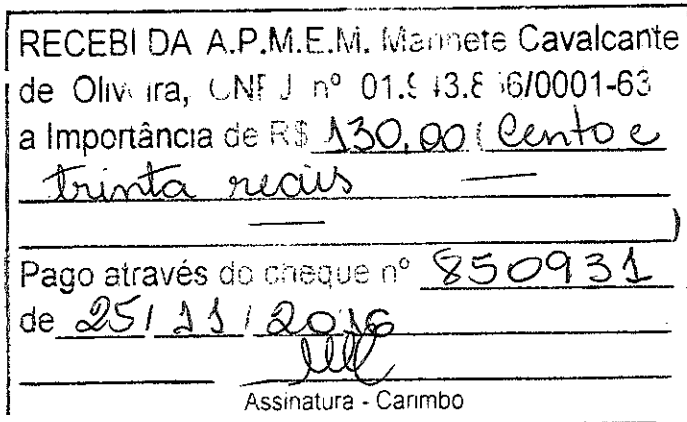 RECEBI DA A.P.M.E.M. Marinete Cavalcante
de Oliveira, CNPJ nº /0001-63
a Importância de R$ 130,00 (Cento e
trinta reais —
— )
Pago através do cheque nº 850931
de 25/11/2016
Assinatura - Carimbo